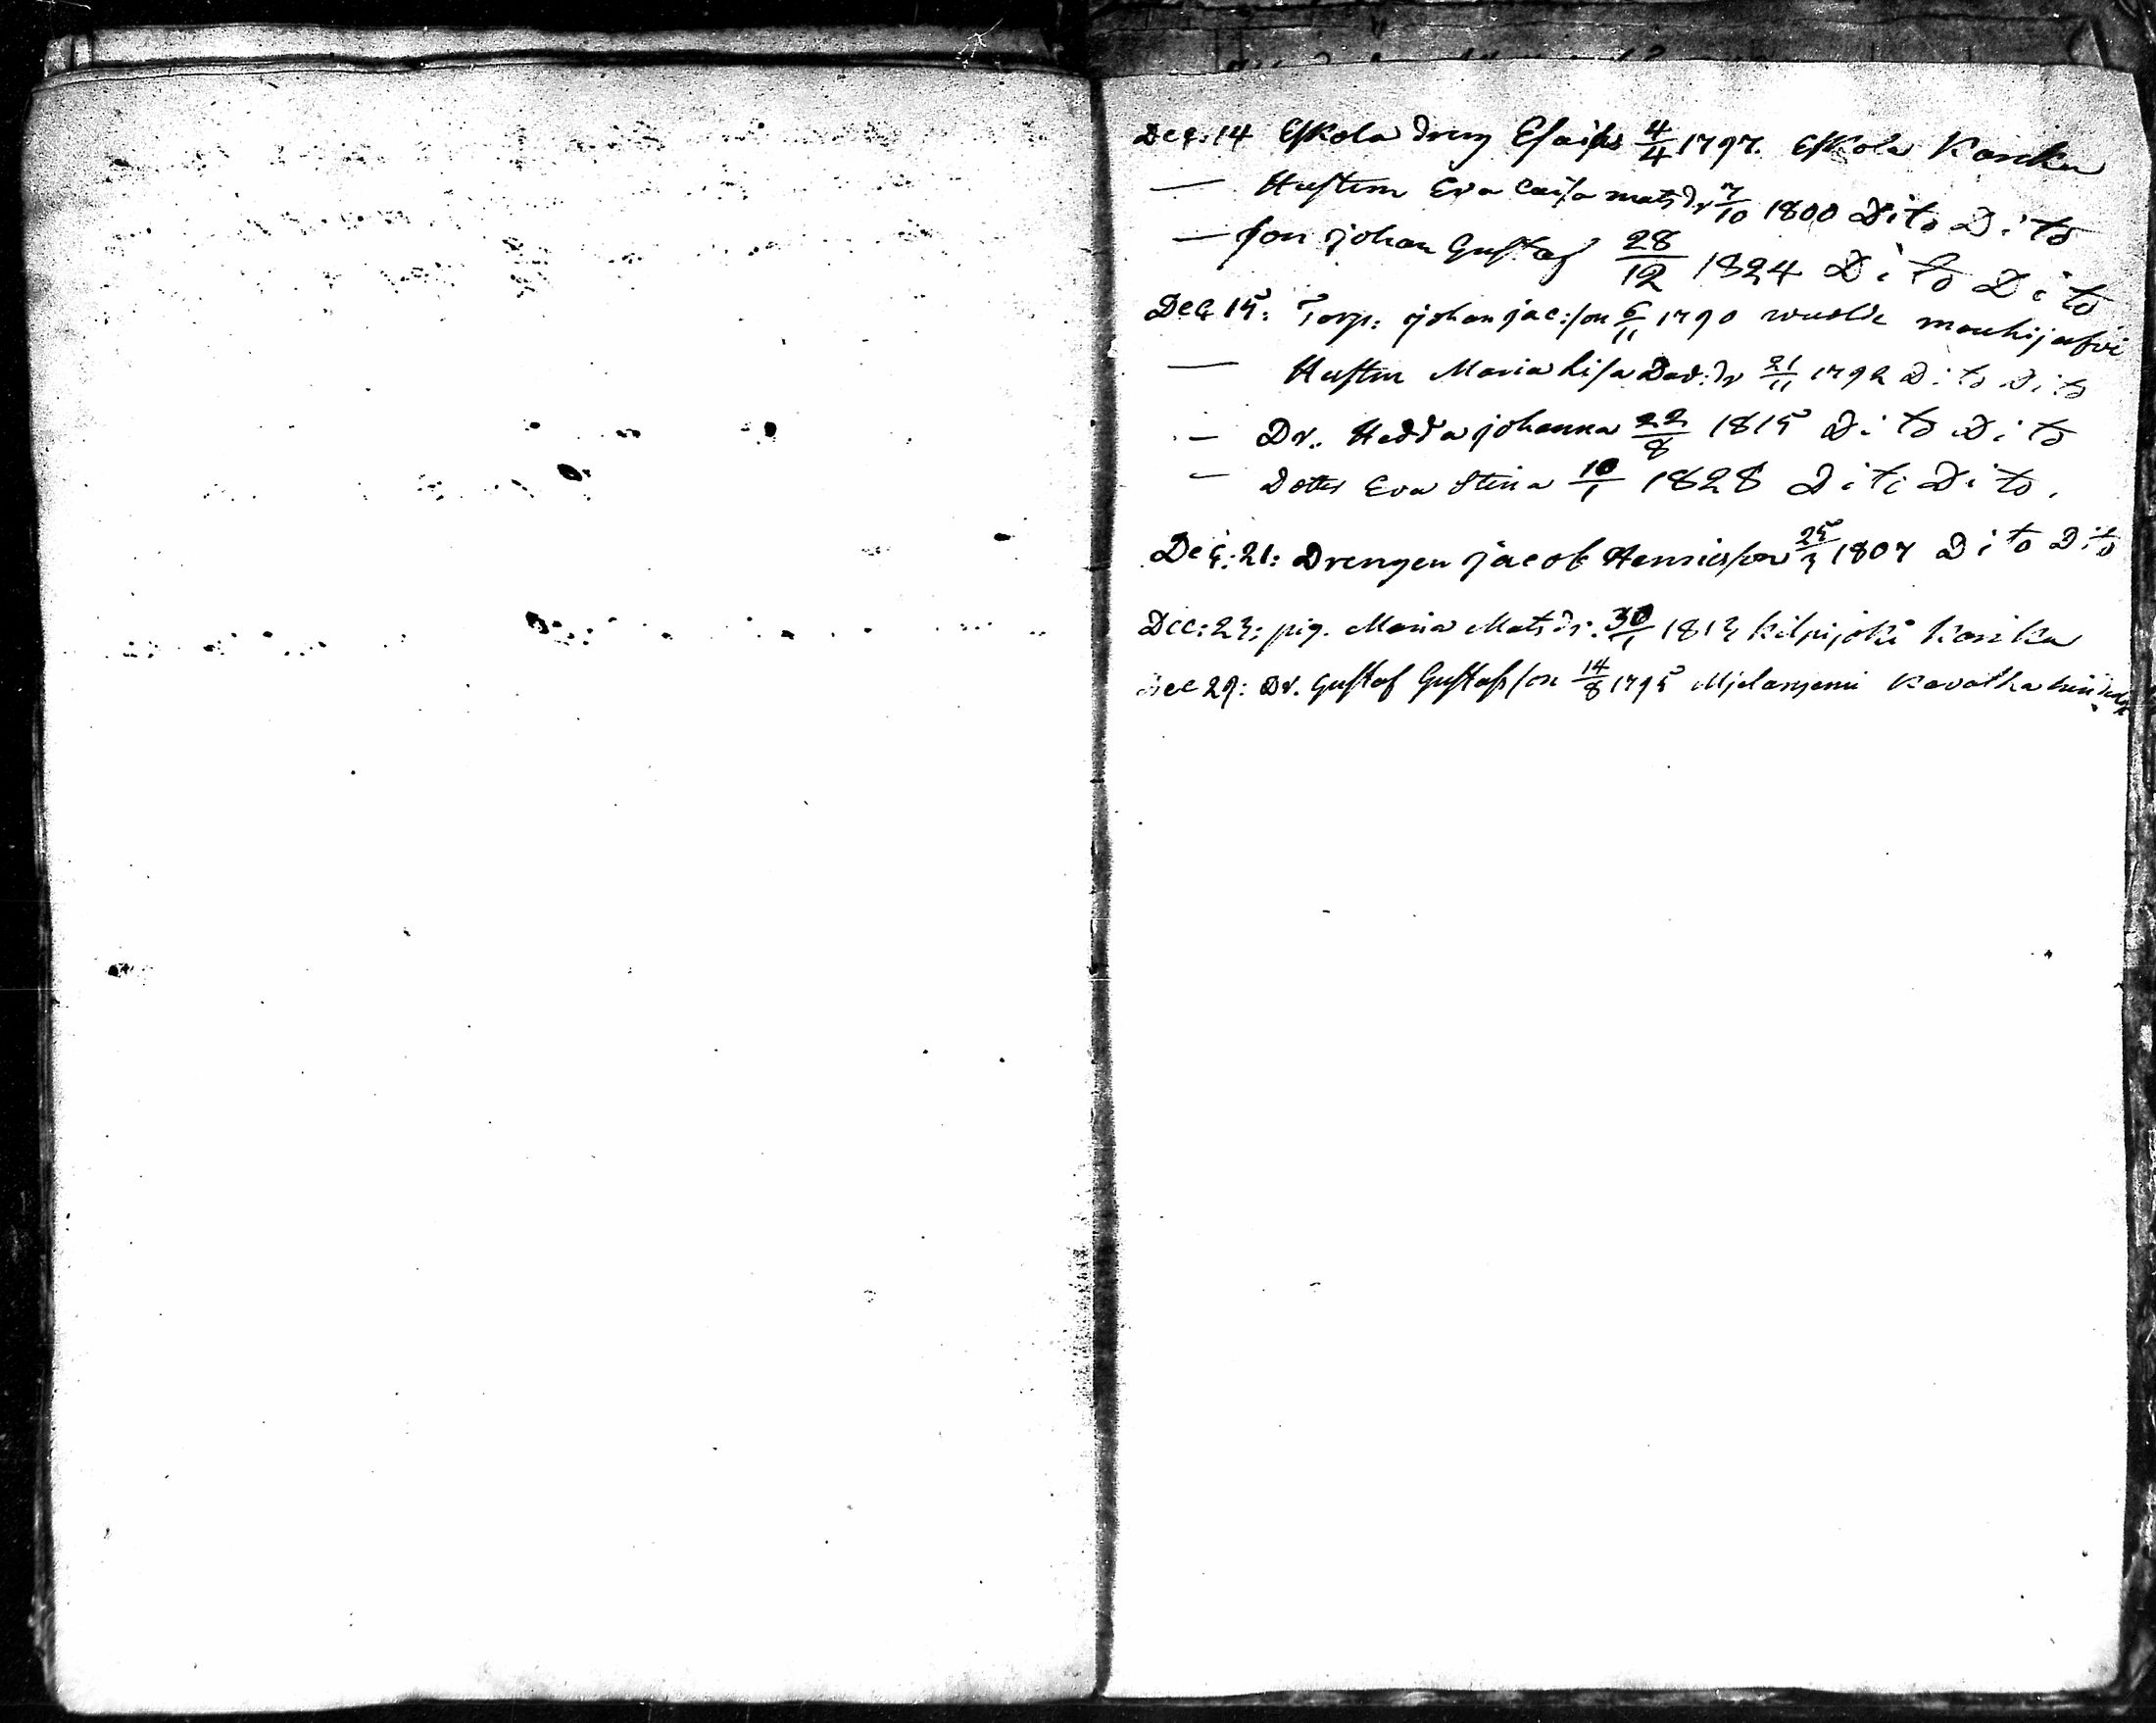 Dec: 14 Eskola dreng Esaias 4/4 1797. Eskola Karcku
— Hustrun Eva Caisa mats dr 7/10 1800 Dito Dito
— son johan Gustaf 28/12 1824 Dito Dito
Dec 15: Torp: johan jac:son 6/11 1790 mouhijerfvi
— Hustru Maria Lisa Dav: dr 21/11 1792 Dito Dito
— Dr. Hedda johanna 22/8 1815 Dito Dito
— Dotter Eva Stina 10/1 1828 Dito Dito.
Dec: 21: Drengen jacob Henricsson 25/3 1807 Dito Dito
Dec: 23: pig. Maria Mats dr. 30/1 1813 kilpijoki
Dec 29: Dr. Gustaf Gustafsson 14/8 1795